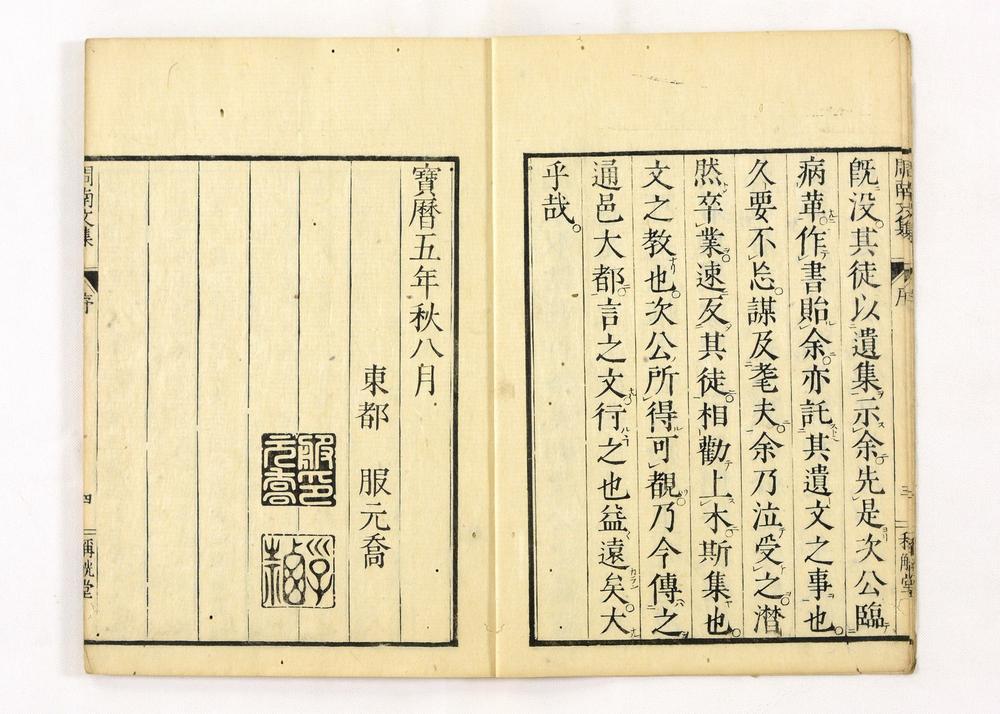 既没其徒以遺集示余先是次公臨
病革作書貽余亦託其遺文之事也
久要不忘謀及耄夫余乃泣受之潜
然卒業速反其徒相勸上木斯集也
文之教也次公所得可覩乃今傳之
通邑大都言之文行之也益遠矣大
乎哉
寶暦五年秋八月
東都 服元喬
服印元喬
周南文集
序
四